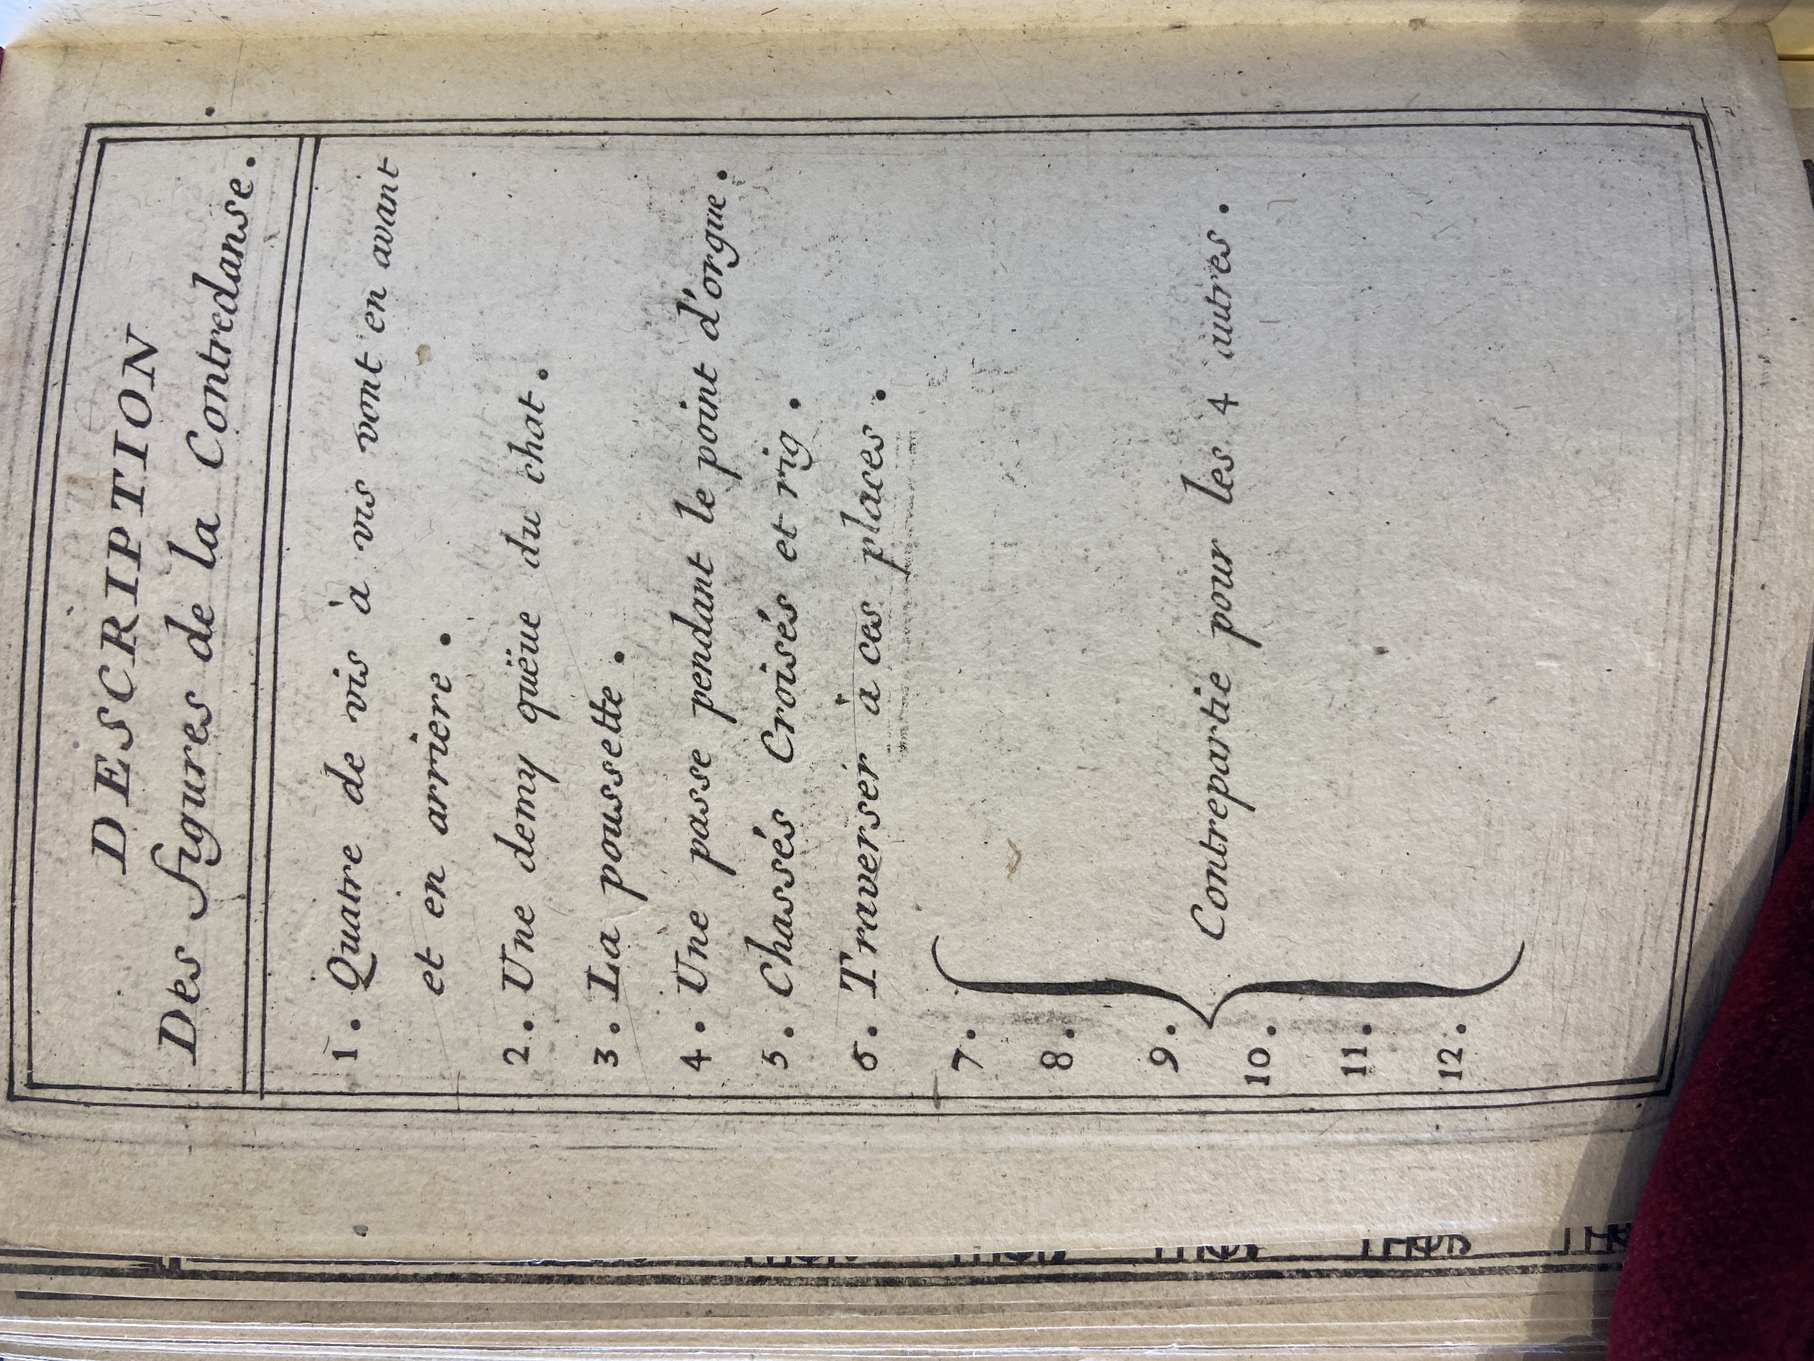 DESCRIPTION
Des figures de la Contredanse.
1. Quatre de vis à vis vont en avant
et en arriere.
2. Une demy quëue du chat.
3. La poussette.
4. Une passe pendant le point d'orgue.
5. Chassés Croisés et rig.
6. Traverser à ces places.
7.
8.
9. Contrepartie pour les 4 autres.
10.
11.
12.